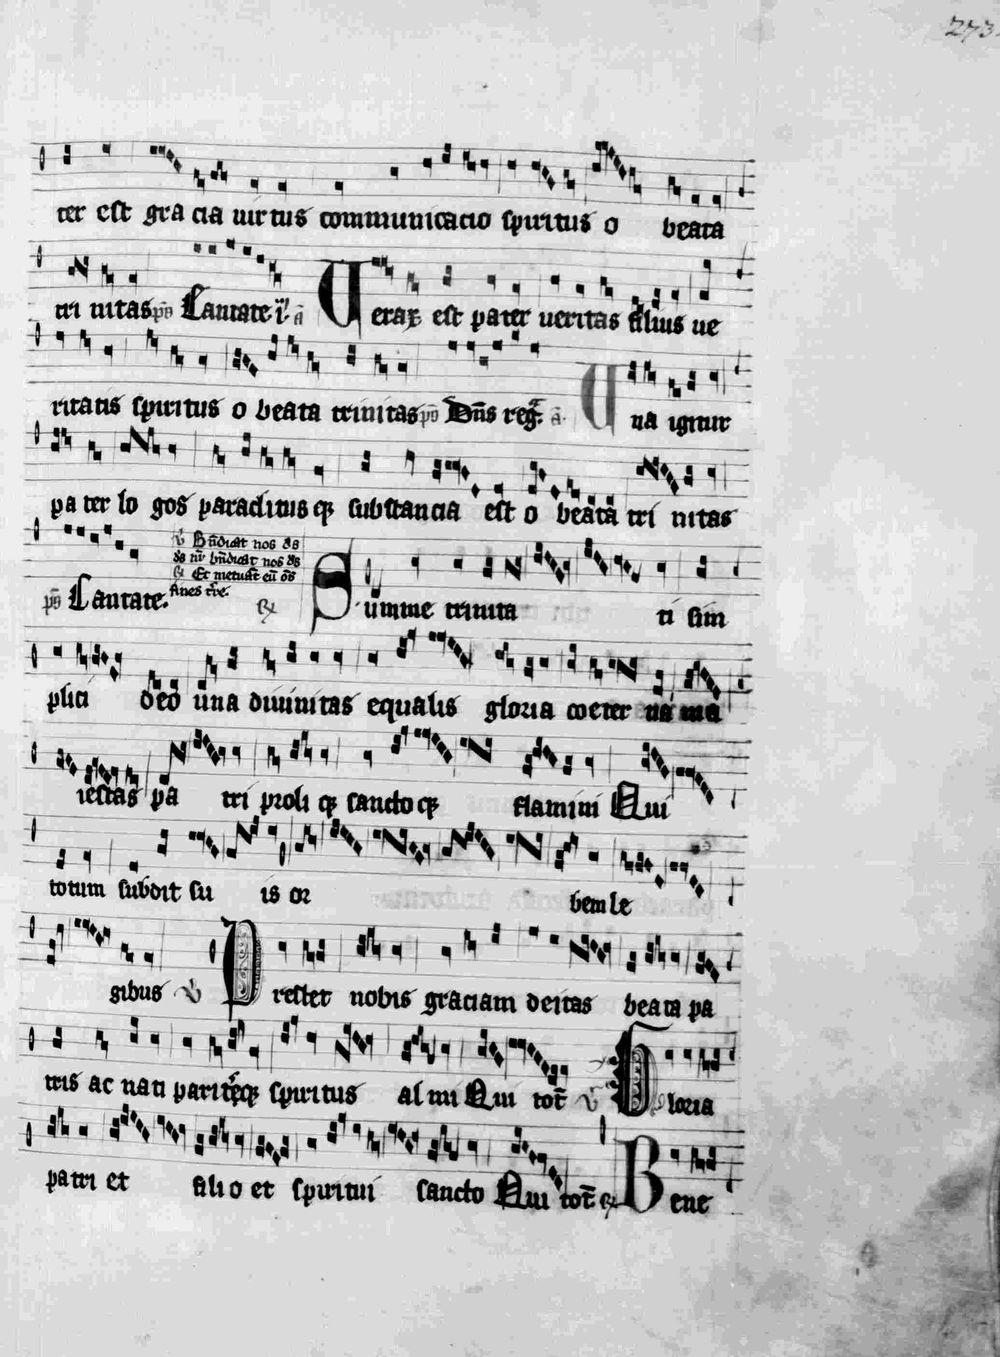 273
ter est gra cia uirtus communicacio spiritus o beata
tri nitas pō Cantate i ā Uerax est pater ueritas filius ue
ritatis spiritus o beata trinitas pō Dn̄s reḡ. ā. Una igitur
pa ter lo gos paraclitus qꝫ substancia est o beata tri nitas
℣ Bn̄dicat nos ds
ds nr̄ bn̄dicat nos ds
℟ Et metuāt eū ōs
fines tr̄e.
pō Cantate. ℟ Summe trinita ti sim
plici deo una diuinitas equalis gloria coeter na ma
iestas pa tri proli qꝫ sancto qꝫ flamini Qui
totum subdit su is or bem le
gibus ℣ Prestet nobis graciam deitas beata pa
tris ac nati pariterqꝫ spiritus al mi Qui tot̄ ℣ Gloria
patri et filio et spiritui sancto Qui tot̄ ℟ Bene